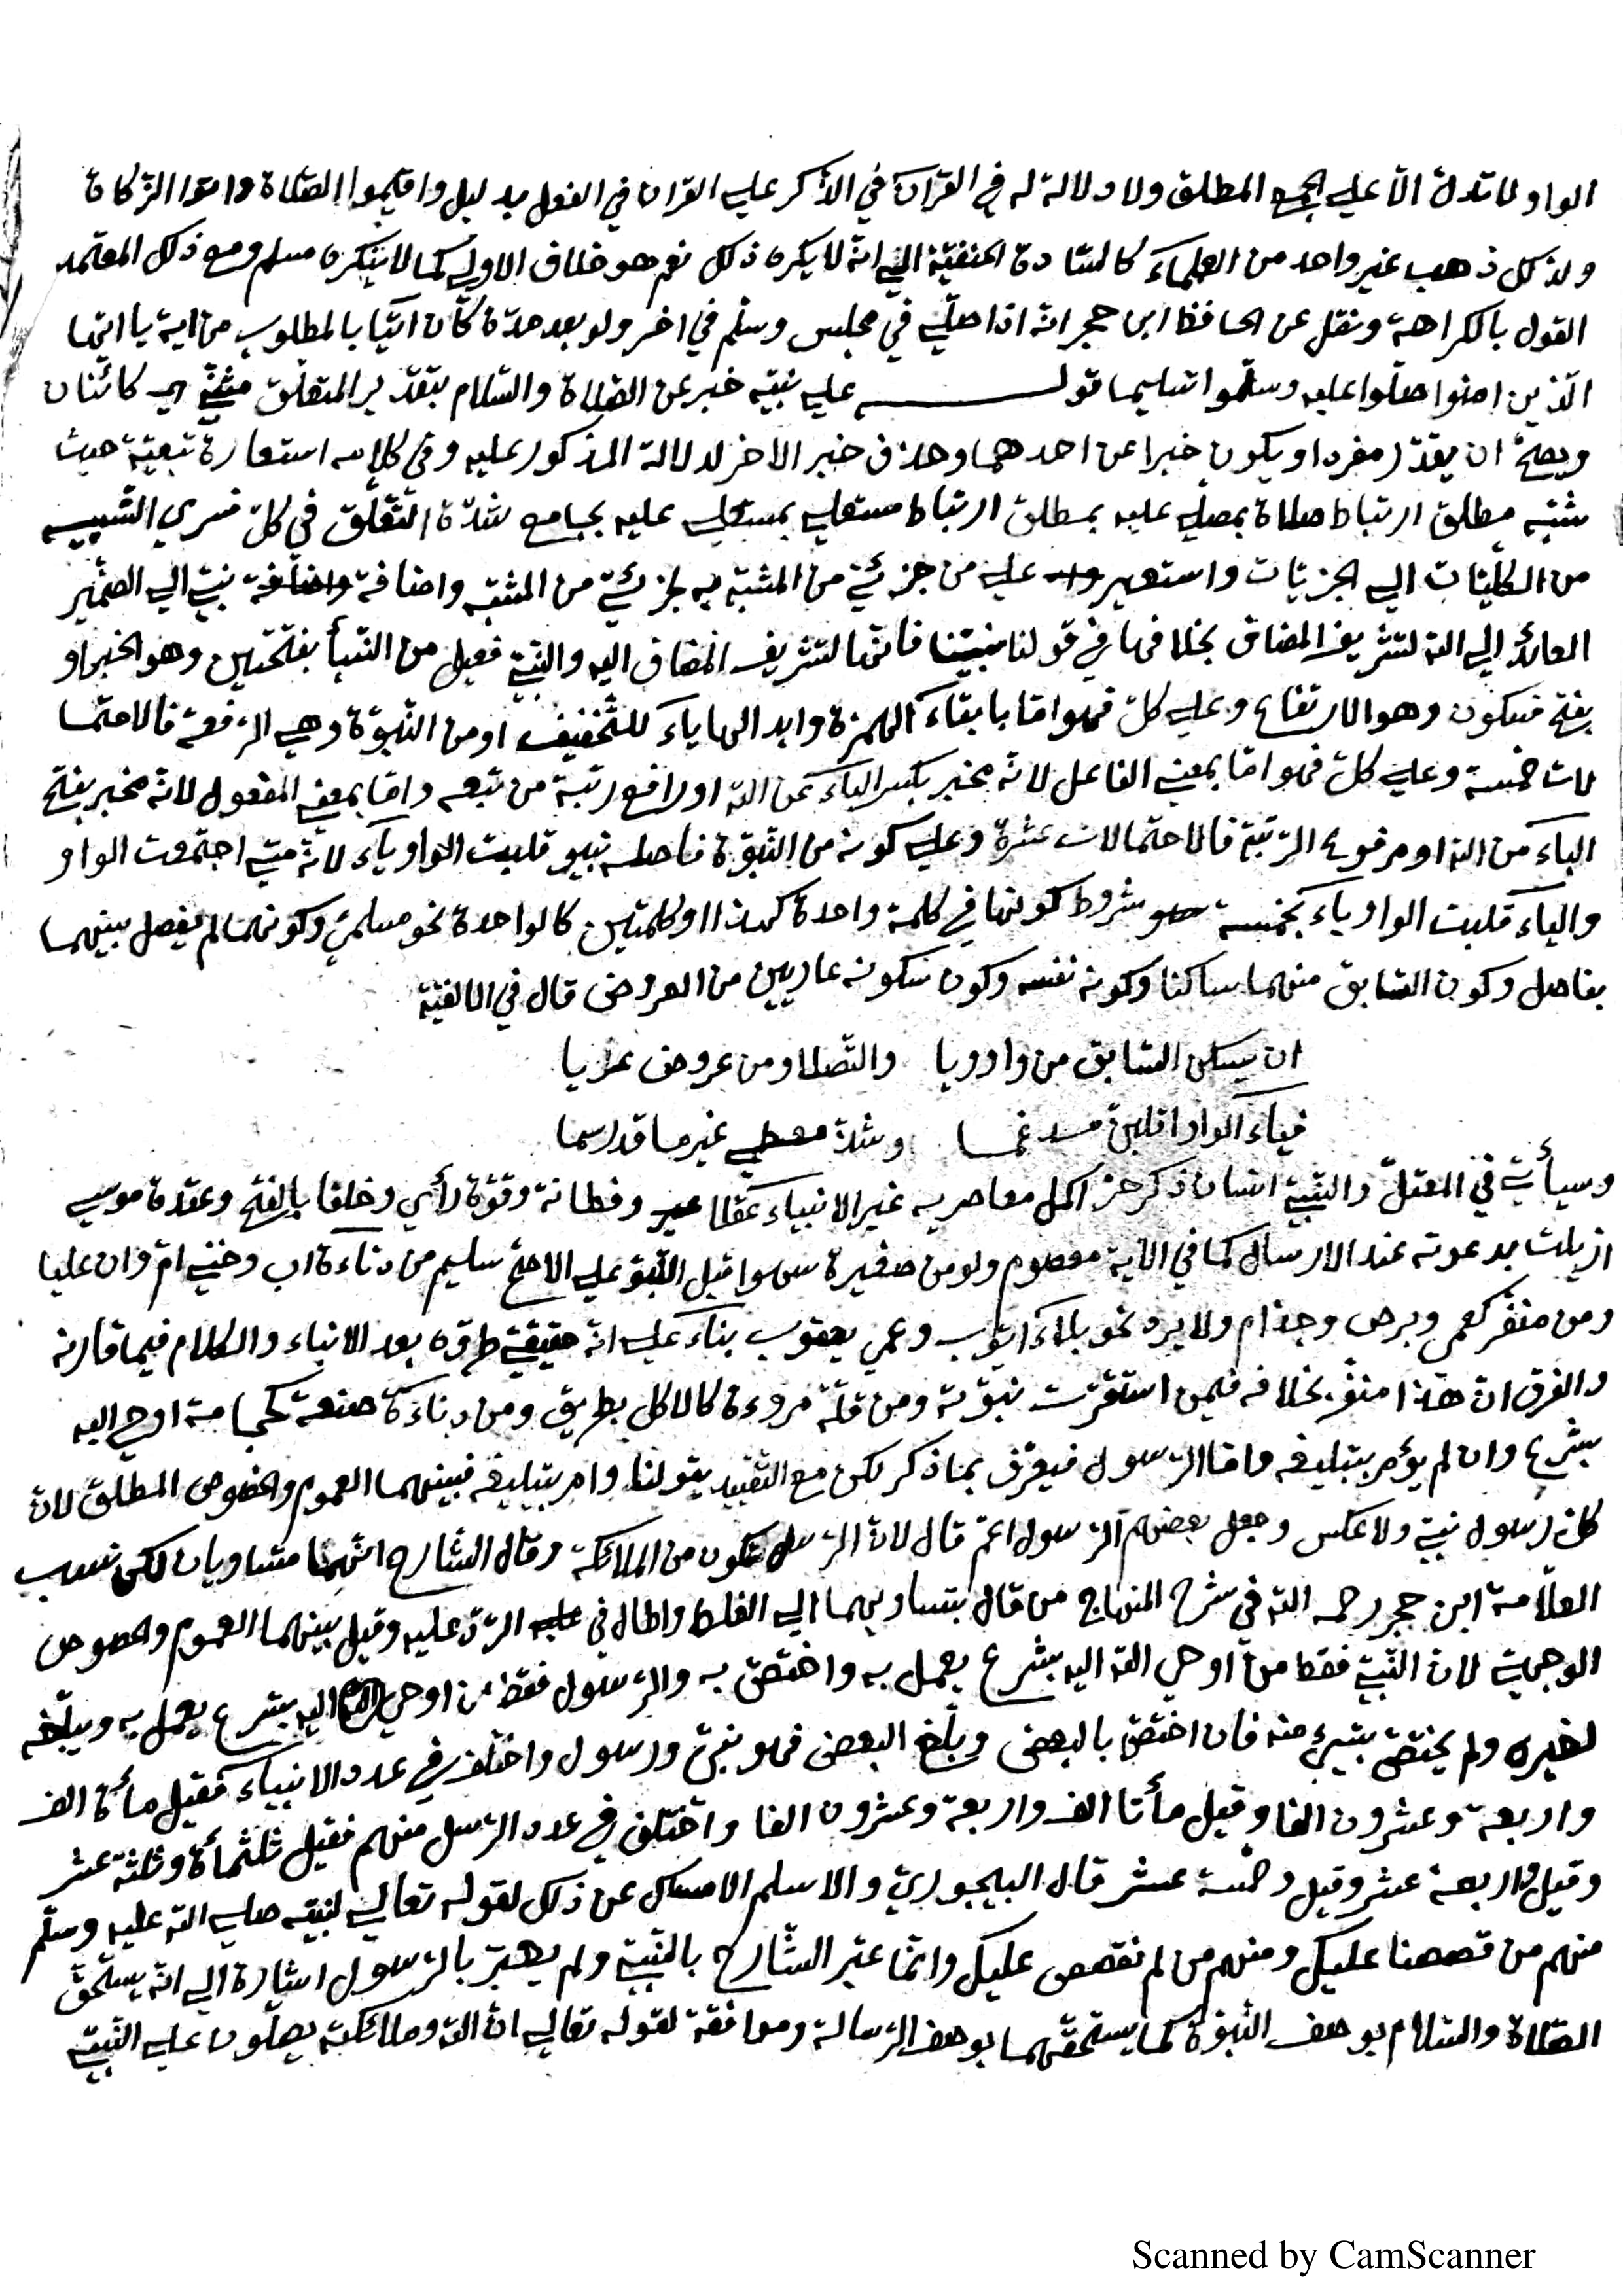 الواو لا تدل الا علي الجمع المطلق ولا دلالة له في القرآن في الذكر علي القران في الفعل بدليل واقيموا الصّلاة واتوا الزّكاة
ولذلك ذهب غير واحد من العلماء كالسّادة الحنفيّة الي انّه لا يكره ذلك نعم هو خلاف الاولي كما لا ينكره مسلم ومع ذلك المعتمد
القول بالكراهة ونقل عن الحافظ ابن حجر انّه اذا صلّي في مجلس وسلّم في اخر ولو بعد مدّة كان اتيا بالمطلوب من اية يا ايّها
الّذين امنوا صلّوا عليه وسلّموا تسليما قولـه علي نبيّه خبر عن الصّلاة والسّلام بتقدير المتعلّق مثنّي اي كائنان
ويصحّ ان يقدّر مفردا ويكون خبرا عن احدهما وحذف خبر الاخر لدلالة المذكور عليه وفي كلامه استعارة تبعيّة حيث
شبّه مطلق ارتباط صلاة بمصلي عليه بمطلق ارتباط مستعلي بمستعلي عليه بجامع شدّة التّعلّق في كلّ فسري التّشبيه
من الكليّات الي الجزئيّات واستعير علي من جزئيّ من المشبّه به لجزئيّ من المشبّه واضافة نبيّ الي الضّمير
العائد الي الله لتشريف المضاف بخلافها في قولنا نبيّنا فانّها لتشريف المضاف اليه والنّبيّ فعيل من النّبأ بفتحتين وهو الخبر او
بفتح فسكون وهو الارتفاع وعلي كلّ فهو امّا بابقاء الهمزة وابدالها ياء للتّخفيف او من النّبوّة وهي الرّفعة فالاحتما
لات خمسة وعلي كلّ فهو امّا بمعني الفاعل لانّه مخبر بكسر الباء عن الله او رافع رتبة من تبعه وامّا بمعني المفعول لانّه مخبر بفتح
الباء من الله او مرفوع الرّتبة فالاحتمالات عشرة وعلي كونه من النّبوّة فاصله نبيو قلبت الواو ياء لانّه متي اجتمعت الواو
والياء قلبت الواو ياء بخمسة شروط كونها في كلمة واحدة كهذا او كلمتين كالواحدة نحو مسلميّ وكونهما لم يفصل بينهما
بفاصل وكون السّابق منهما ساكنا وكونه نفسه وكون سكونه عاريين من العروض قال في الالفيّة
ان يسكن السّابق من واو ويا والتّصلا ومن عروض عريا
فياء الواو اقلبنّ مدغما وشذّ معطي غير ما قد رسما
وسيأتي في المعتلّ والنّبيّ انسان ذكر حرّ اكمل معاصريه غير الانبياء عقلا وفطانة وقوّة رأي وخلقا بالفتح وعقدة موسي
ازيلت بدعوته عند الارسال كما في الآية معصوم ولو من صغيرة سهوا قبل النّبوّة علي الاصحّ سليم من دناءة اب وخني امّ وان عليا
ومن منفّر كعمي وبرص وجذام ولا يرد نحو بلاء ايّوب وعمي يعقوب بناء علي انّه حقيقيّ طروّه بعد الانباء والكلام فيما قارنه
والفرق انّ هذا منفّر بخلافه فيمن استقرّت نبوّته ومن قلّة مروءة كالاكل بطريق ومن دناءة صنعة كحجامة اوحي اليه
بشرع وان لم يؤمر بتبليغه وامّا الرّسول فيعرّف بما ذكر لكن مع التّقييد بقولنا وامر بتبليغه فبينهما العموم والخصوص المطلق لانّ
كلّ رسول نبيّ ولا عكس وجعل بعضهم الرّسول اعمّ قال لانّ الرّسل تكون من الملائكة وقال الشّارح انّهما متساويان لكن نسب
العلّامة ابن حجر رحمه الله في شرح المنهاج من قال بتساويهما الي الغلط واطال في الرّدّ عليه وقيل بينهما العموم والخصوص
الوجهيّ لانّ النّبيّ فقط من اوحي الله اليه بشرع يعمل به واختصّ به والرّسول فقط من اوحي اليه بشرع يعمل به ويبلّغه
لغيره ولم يختصّ بشيء منه فان اختصّ بالبعض وبلّغ البعض فهو نبيّ ورسول واختلف في عدد الانبياء فقيل مأة الف
واربعة وعشرون الفا وقيل مأتا الف واربعة وعشرون الفا واختلف في عدد الرّسل منهم فقيل ثلثمأة وثلثة عشر
وقيل واربعة عشر وقيل وخمسة عشر قال البيجوريّ والاسلم الامساك عن ذلك لقوله تعالي لنبيّه صلي الله عليه وسلّم
منهم من قصصنا عليك ومنهم من لم نقصص عليك وانّما عبّر الشّارح بالنّبيّ ولم يعبّر بالرّسول اشارة الي انّه يستحقّ
الصّلاة والسّلام بوصف النّبوّة كما يستحقّهما بوصف الرّسالة وموافقة لقوله تعالي انّ الله وملائكته يصلّون علي النّبيّ
Scanned by CamScanner